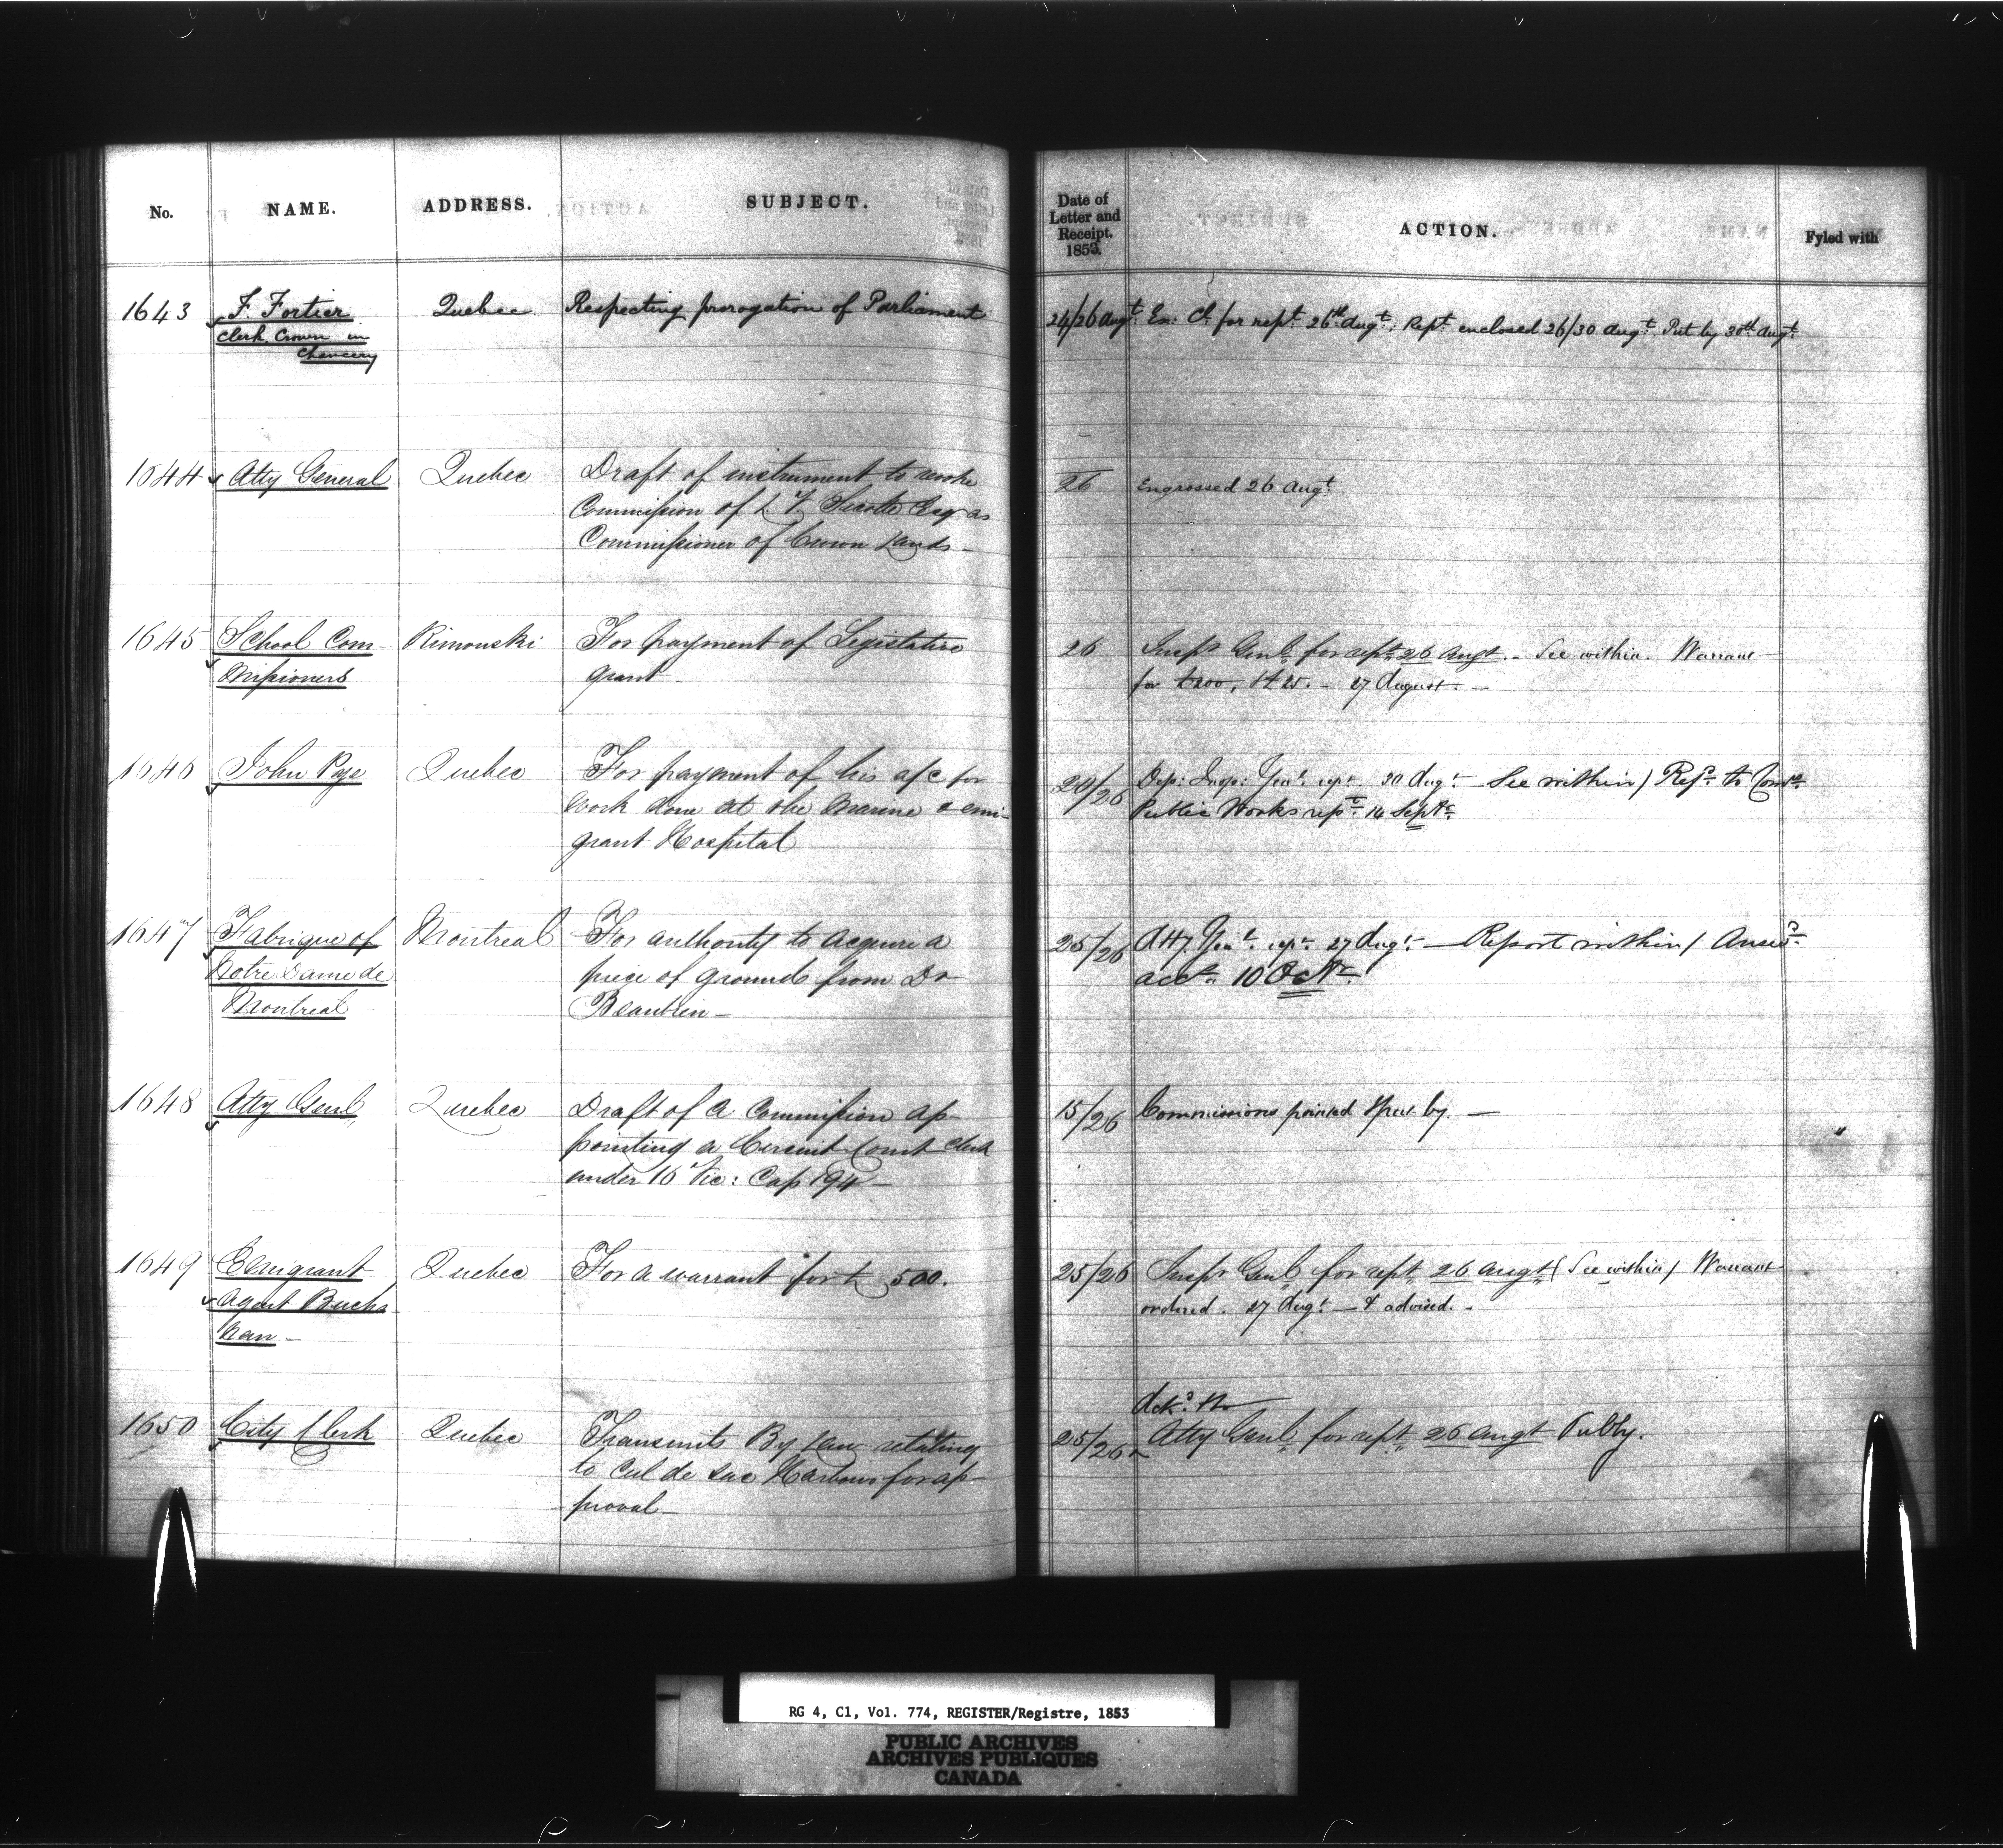 No. NAME. ADDRESS. SUBJECT. Date of Letter and Receipt. 1853. ACTION. Fyled with
1643 F. Fortier Quebec Respecting prorogation of Parliament 24/26 Augt. Ex: Cl. for rept. 26th Augt. Rept. enclosed 26/30 Augt. Put by 30th Augt.
Clerk Crown in
Chancery
1644 Atty General Quebec Draft of instrument to revoke 26 Engrossed 26 Augt.
Commission of L V Sicotte Esq as
Commissioner of Crown Lands-
1645 School Com- Rimouski For payment of Legislative 26 Inspr Genl. for rept. 26 Augt. - See within. Warrant
missioners grant - for 27 August. -
1646 John Pye Quebec For payment of his a/c for 20/26 Dep: Insp: Genl. rept. 30 Augt. - See within / Refd. to Comrs.
work done at the Marine & emi- Public Works rept. 14 Septr.
grant Hospital
1647 Fabrique of Montreal For authority to acquire a 25/26 Atty. Genl. rept. 27 Augt. - Report within / Answd.
Notre Dame de piece of ground from Dr accn. 10 Octr.
Montreal Beaubien -
1648 Atty Genl. Quebec Draft of a Commission ap- 15/26 Commissions printed & put by. -
pointing a Circuit Court Clerk
under 16 Vic: Cap 194 -
1649 Emigrant Quebec For a warrant for £ 500. 25/26 Inspr Genl. for rept. 26 Augt. (See within) Warrant
Agent Bucha ordered. 27 Augt. - & advised. -
nan -
Ackd.
1650 City Clerk Quebec Transmits By Law relating 25/26 Atty Genl. for rept. 26 Augt
to Cul de Sac Harbour for ap-
proval -
RG 4, C1, Vol. 774, REGISTER/Registre, 1853
PUBLIC ARCHIVES
ARCHIVES PUBLIQUES
CANADA